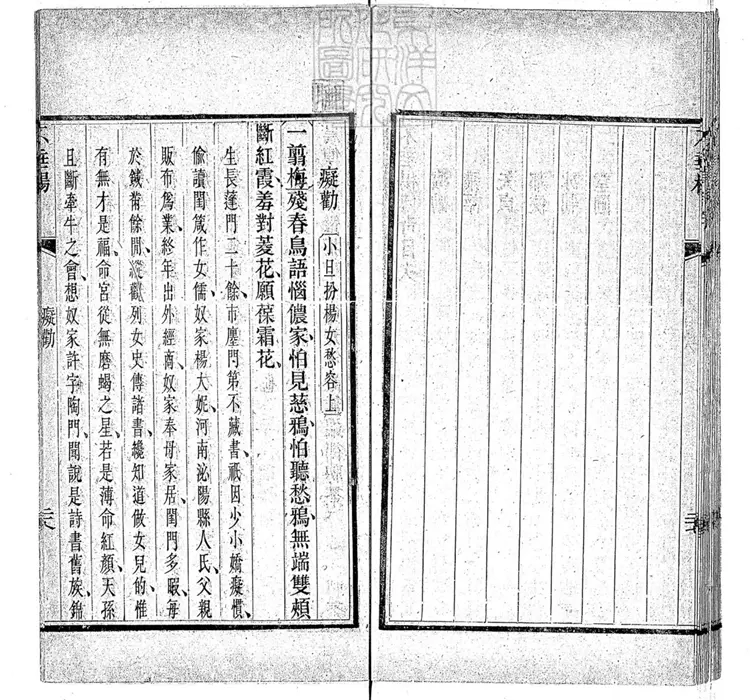 癡勸
小旦扮楊女愁容上
一翦梅殘春鳥語惱儂家、怕見慈鴉、怕聽愁鴉、無端雙頰
斷紅霞、羞對菱花、願葆霜花、
生長蓬門二十餘、市廛門第不藏書、祇因少小嬌癡慣、
偷讀閨箴作女儒、奴家楊大妮、河南泌陽縣人氏、父親
販布爲業、終年出外經商、奴家奉母家居、閨門多暇、每
於鍼黹餘閒、縱觀列女史傳諸書、纔知道做女兒的、惟
有無才是福、命宮從無磨蝎之星、若是薄命紅顏、天孫
且斷牽牛之會、想奴家許字陶門、聞說是詩書舊族、錦
癡勸